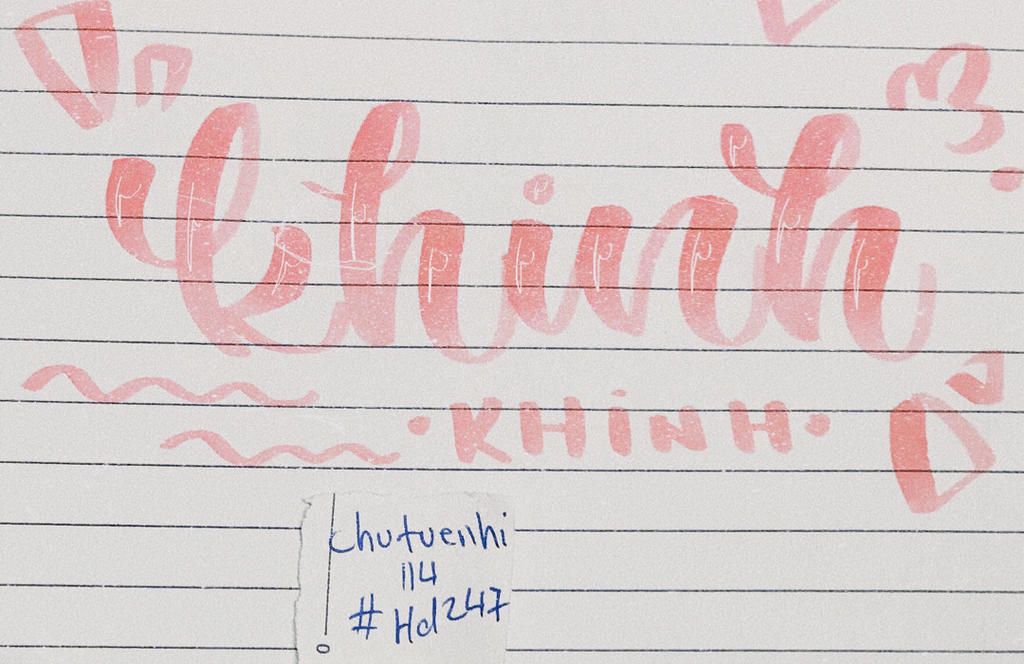 khinh
• KHiNH •
chutuenhi
114
#Hd247